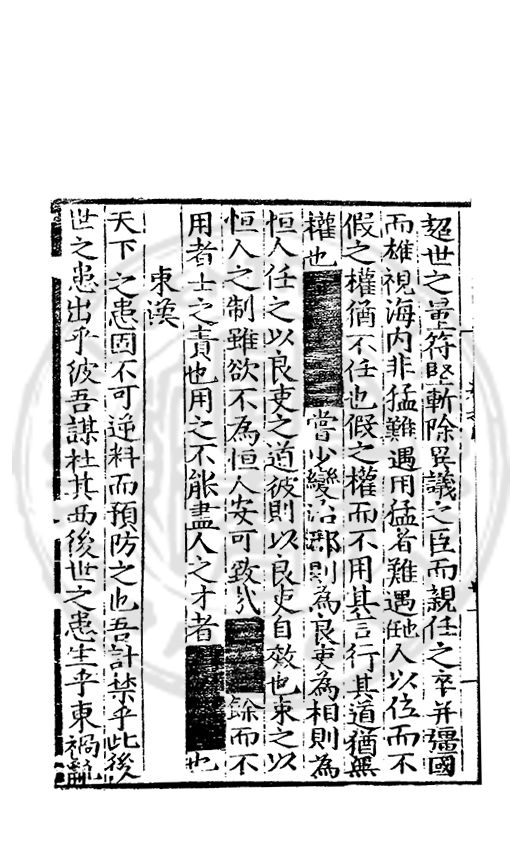 超世之量符堅斬除異議之臣而親任之卒并彊國
而雄視海内非猛難遇用猛者難遇也人以位而不
假之權猶不任也假之權而不用其言行其道猶無
權也嘗少變治郡則為良吏為相則為
恒人任之以良吏之道彼則以良吏自效也束之以
恒人之制雖欲不為恒人安可致哉餘而不
用者士之責也用之不能盡人之才者也
東漢
天下之患固不可逆料而預防之也吾計禁乎此後
世之患出乎彼吾謀杜其西後世之患生乎東禍亂